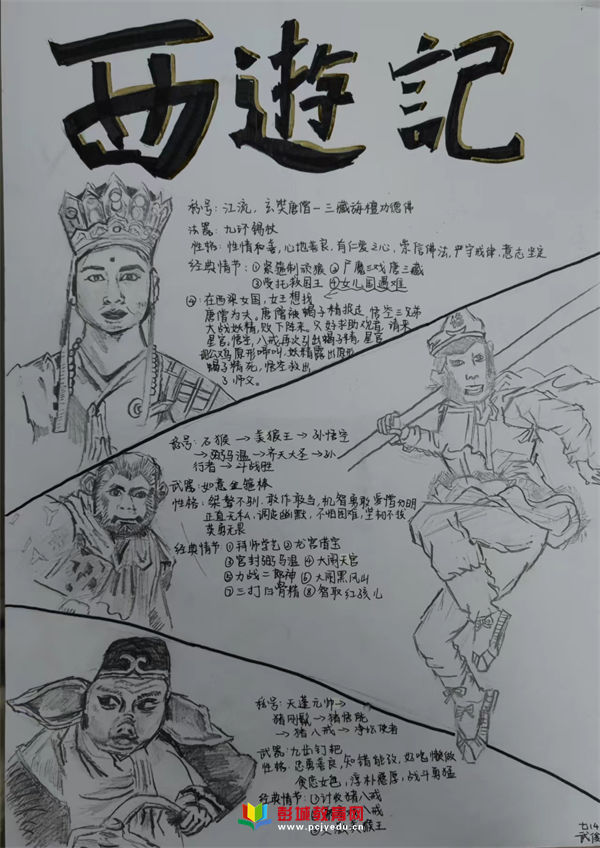 西遊記
称号：江流，玄奘唐僧—三藏旃檀功德佛
法器：九环锡杖
性格：性情和善，心地善良，有仁爱之心，崇信佛法，严守戒律，意志坚定
经典情节：①紧箍制顽猴 ②尸魔三戏唐三藏
③受托救国王 ④女儿国遇难
④：在西梁女国，女王想找
唐僧为夫。唐僧被蝎子精报走，悟空三兄弟
大战妖精，败下阵来。又好求助观音，请来
星官，悟空，八戒再次引出蝎子精，星官
现公鸡原形啼叫，妖精露出原形
蝎子精死，悟空救出
了师父。
称号：石猴→美猴王→孙悟空
→弼马温→齐天大圣→孙
行者→斗战胜
武器：如意金箍棒
性格：桀骜不驯，敢作敢当，机智勇敢爱憎分明
正直无私，调皮幽默，不怕困难，坚韧不拔
英勇无畏
经典情节①拜师学艺②龙宫借宝
③官封弼马温 ④大闹天宫
⑤力战二郎神 ⑥大闹黑风山
⑦三打白骨精 ⑧智取红孩儿
称号：天蓬元帅→
猪刚鬣→猪悟能
→猪八戒→净坛使者
武器：九齿钉耙
性格：忠勇善良，知错能改，好吃懒做
贪恋女色，淳朴憨厚，战斗勇猛
经典情节：①计收猪八戒
八戒
猴王
彭城教育网
www.pcjyedu.cn
七14